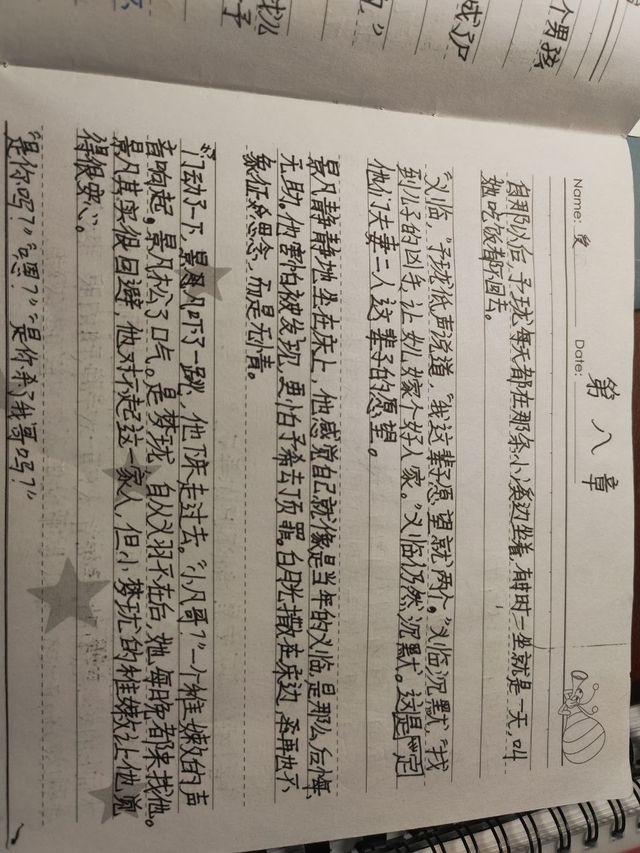 个男孩
成沁
"
我松
子
Name: 
Date:
第八章
自那以后，予珑每天都在那条小溪边坐着，有时一坐就是一天，叫
她吃饭都不回去。
"义临，"予珑低声说道，"我这辈子愿望就两个。"义临沉默，"找
到儿子的凶手，让女儿嫁个好人家。"义临仍然沉默。这是
他们夫妻二人这辈子的愿望。
景凡静静地坐在床上，他感觉自己就像是当年的义临，是那么后悔、
无助。他害怕被发现，更怕予希去顶罪。白月光撒在床边，
象征思念，而是无情。
门动了一下，景凡吓了一跳，他下床走过去。"小凡哥？"一个稚嫩的声
音响起。景凡松了口气。是梦珑，自从义羽不在后，她每晚都来找他。
景凡其实很回避，他对不起这一家人，但小梦珑的稚嫩让他觉
得很安心。
"是你吗？""嗯？""是你杀了我哥吗？"